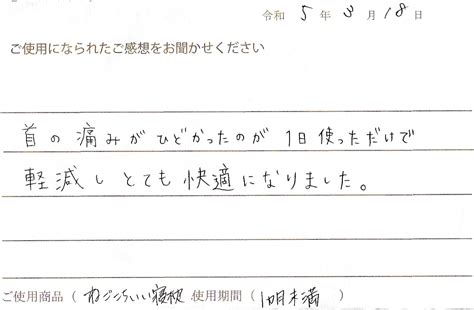 令和 5 年 3 月 18 日
ご使用になられたご感想をお聞かせください
首の痛みがひどかったのが 1日使っただけで
軽減しとても快適になりました。
ご使用商品（ねごこちいい寝枕）使用期間（1カ月未満）